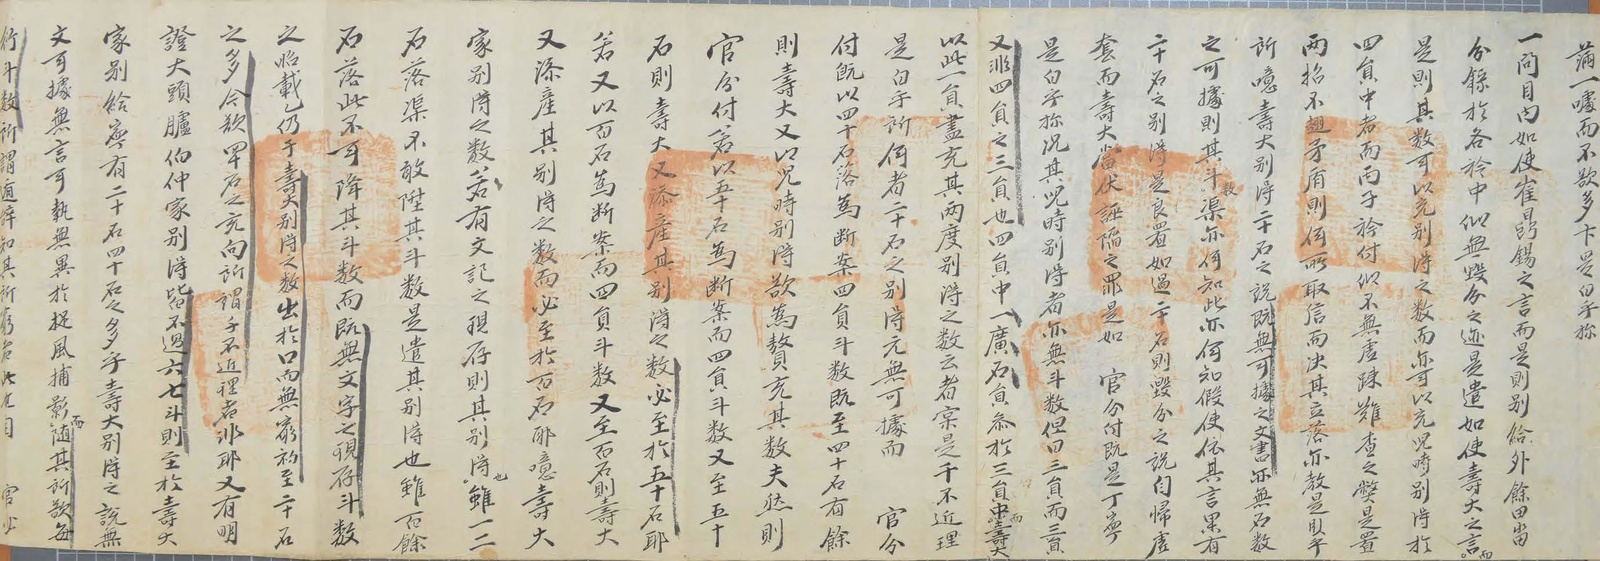 蒲一嘘而不欲多卞是白乎㫆
一問目內如使崔昌錫之言而是則別給外餘田畓
分錄於各衿中似無毀分之迹是遣如使壽大之言而
是則其數可以充別得之數而亦可以充兒時別得於
四員中者而丙子衿付似不無虛踈難查之弊是置
兩招不翅矛盾則何所取信而決其立落亦敎是臥乎
所噫壽大別得二十石之說旣無可據之文書亦無石數
之可據則其斗數渠亦何知此亦何知假使依其言果有
二十石之別得是良置如過二十石則毀分之說自歸虛
套而壽大當伏誣陷之罪是如 官分付旣是丁寧
是白乎㫆況其兒時別得者亦無斗數但曰三員而三員
又非四員之三員也四員中一廣石員叅於三員中而壽大
以此一員盡充其兩度別得之數云者寀是千不近理
是白乎所何者二十石之別得元無可據而 官分
付旣以四十石落爲斷案四員斗數旣至四十石有餘
則壽大又以兒時別得欲爲贅充其數夫然則
官分付若以五十石爲斷案而四員斗數又至五十
石則壽大又添産其別得之數必至於五十石耶
若又以百石爲斷案而四員斗數又至百石則壽大
又添産其別得之數而必至於百石耶噫壽大
家別得之數若有文記之現存則其別得也雖一二
石落渠不敢陞其斗數是遣其別得也雖百餘
石落此不可降其斗數而旣無文字之現存斗數
之昭載乙仍于壽大別得之數出於口而無窮初至二十石
之多今欲四十石之充向所謂千不近理者非耶又有明
證大頭臚伯仲家別得皆不過六七斗則至於壽大
家別給寧有二十石四十石之多乎壽大別得之說無
文可據無言可執無異於捉風捕影而隨其所欲每
衍斗數所謂遁辭知其所窮者此也 官必